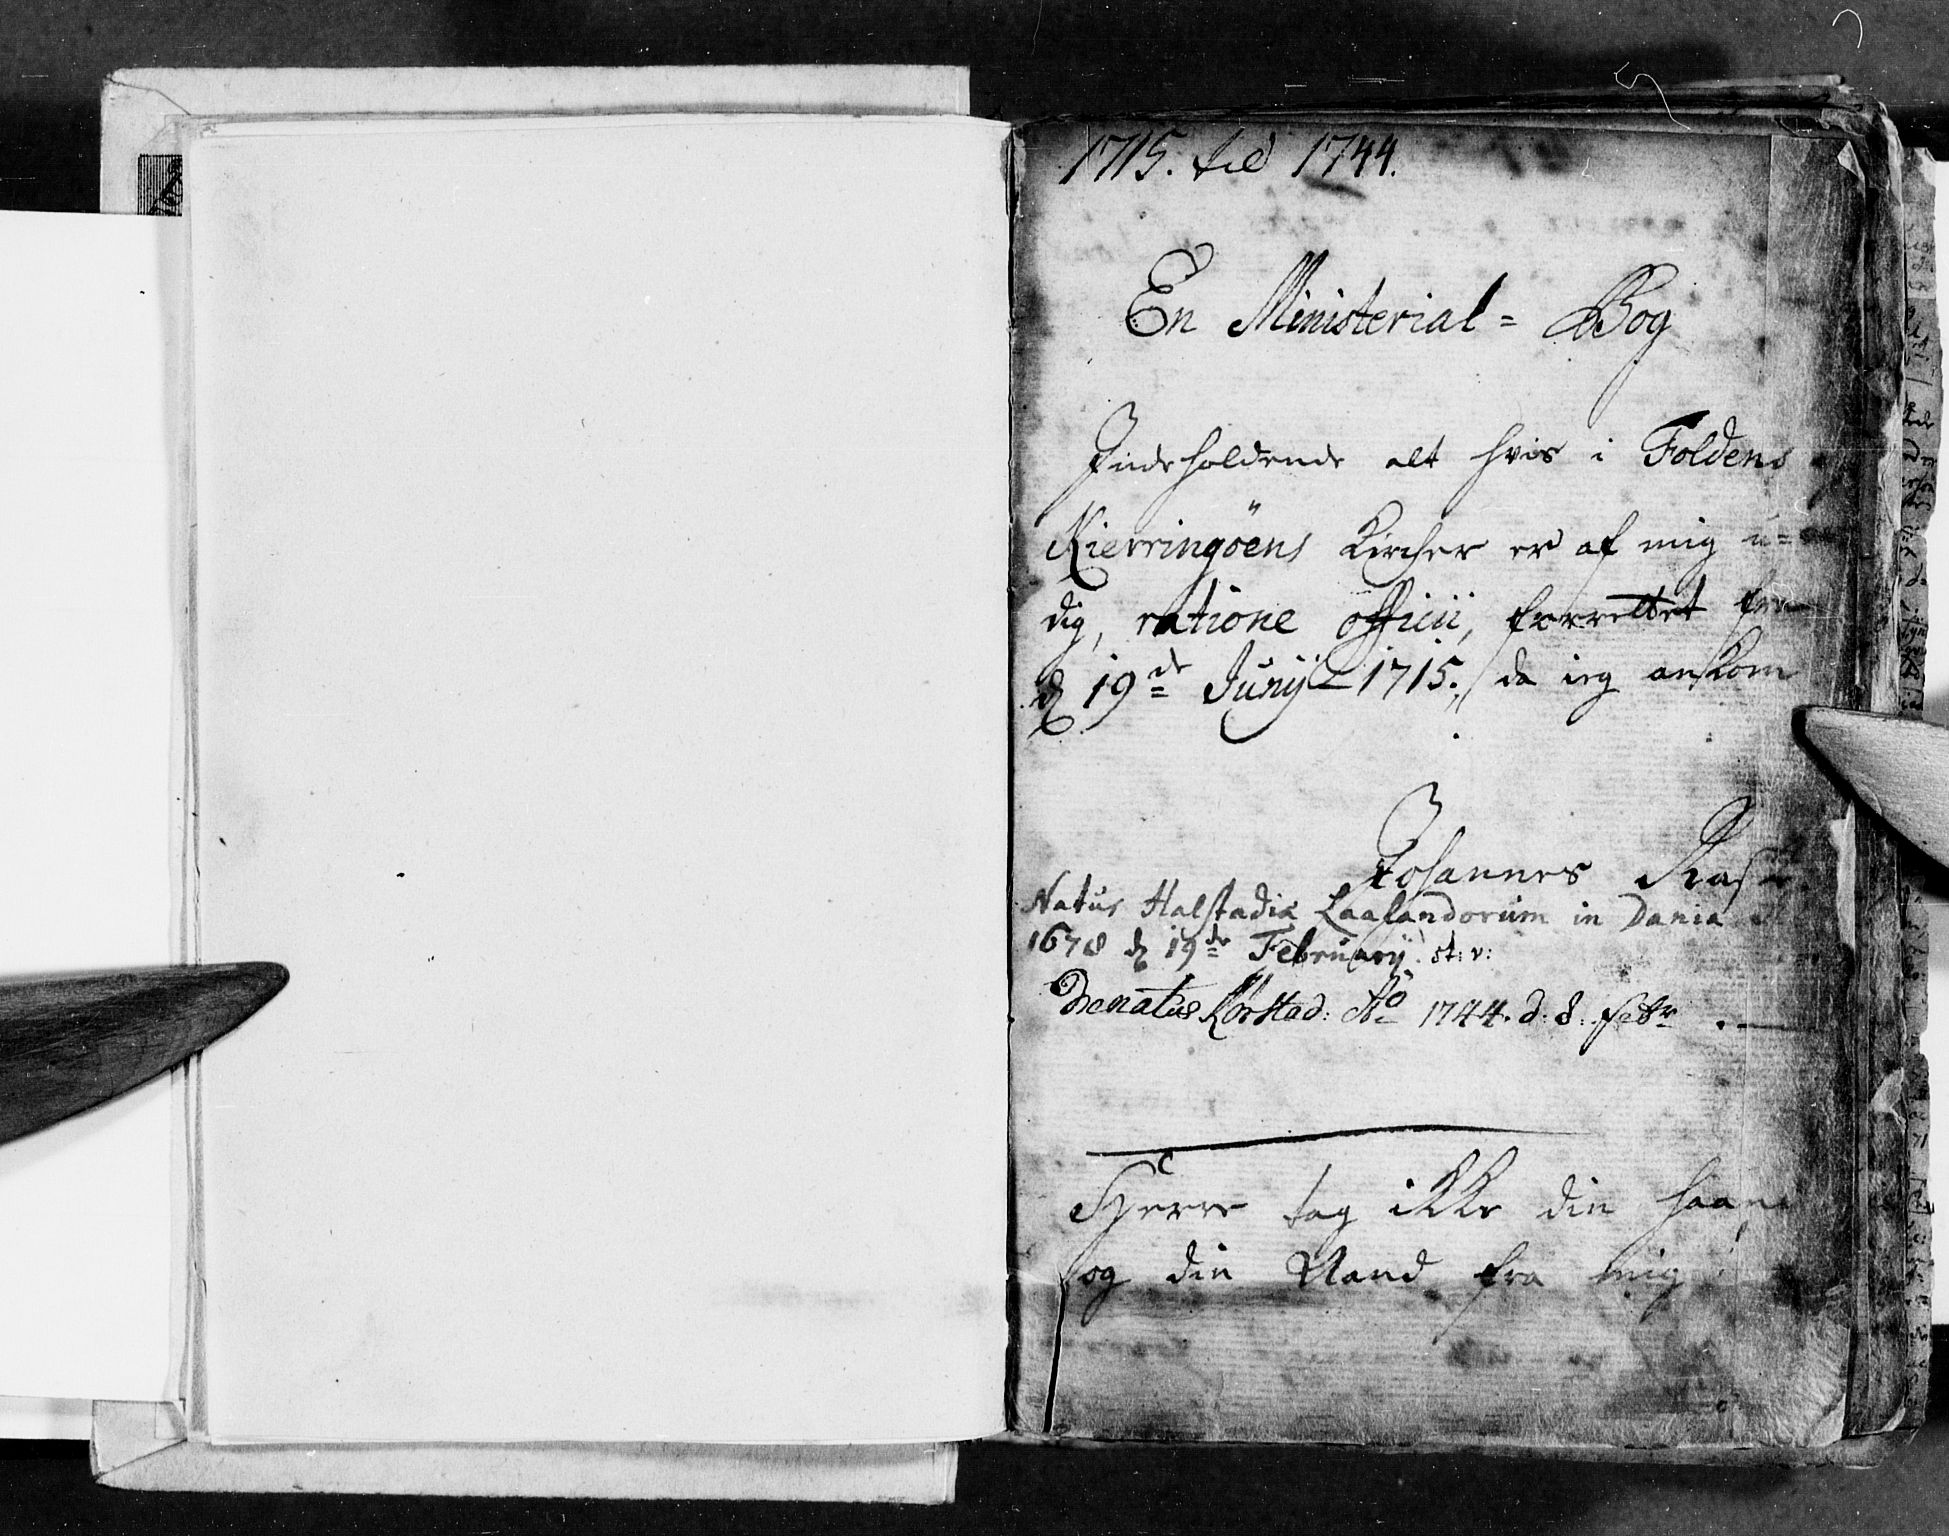 1715. til 1744.
En Ministerial = Bog
Indeholdende alt hvis i Foldens
Kierringöens Kircher er af mig u=
dig, ratione officii, forrettet fra
d 19de Junij 1715. da ieg ankom
Johannes Rasch
Natus Halstadiæ Laalandorum in Dania
1678 d 19de Februarij. st: v:
Denatus Rørstad: Aō 1744. d. 8. Febr
Herre tag ikke din haand
og din Aand fra mig!